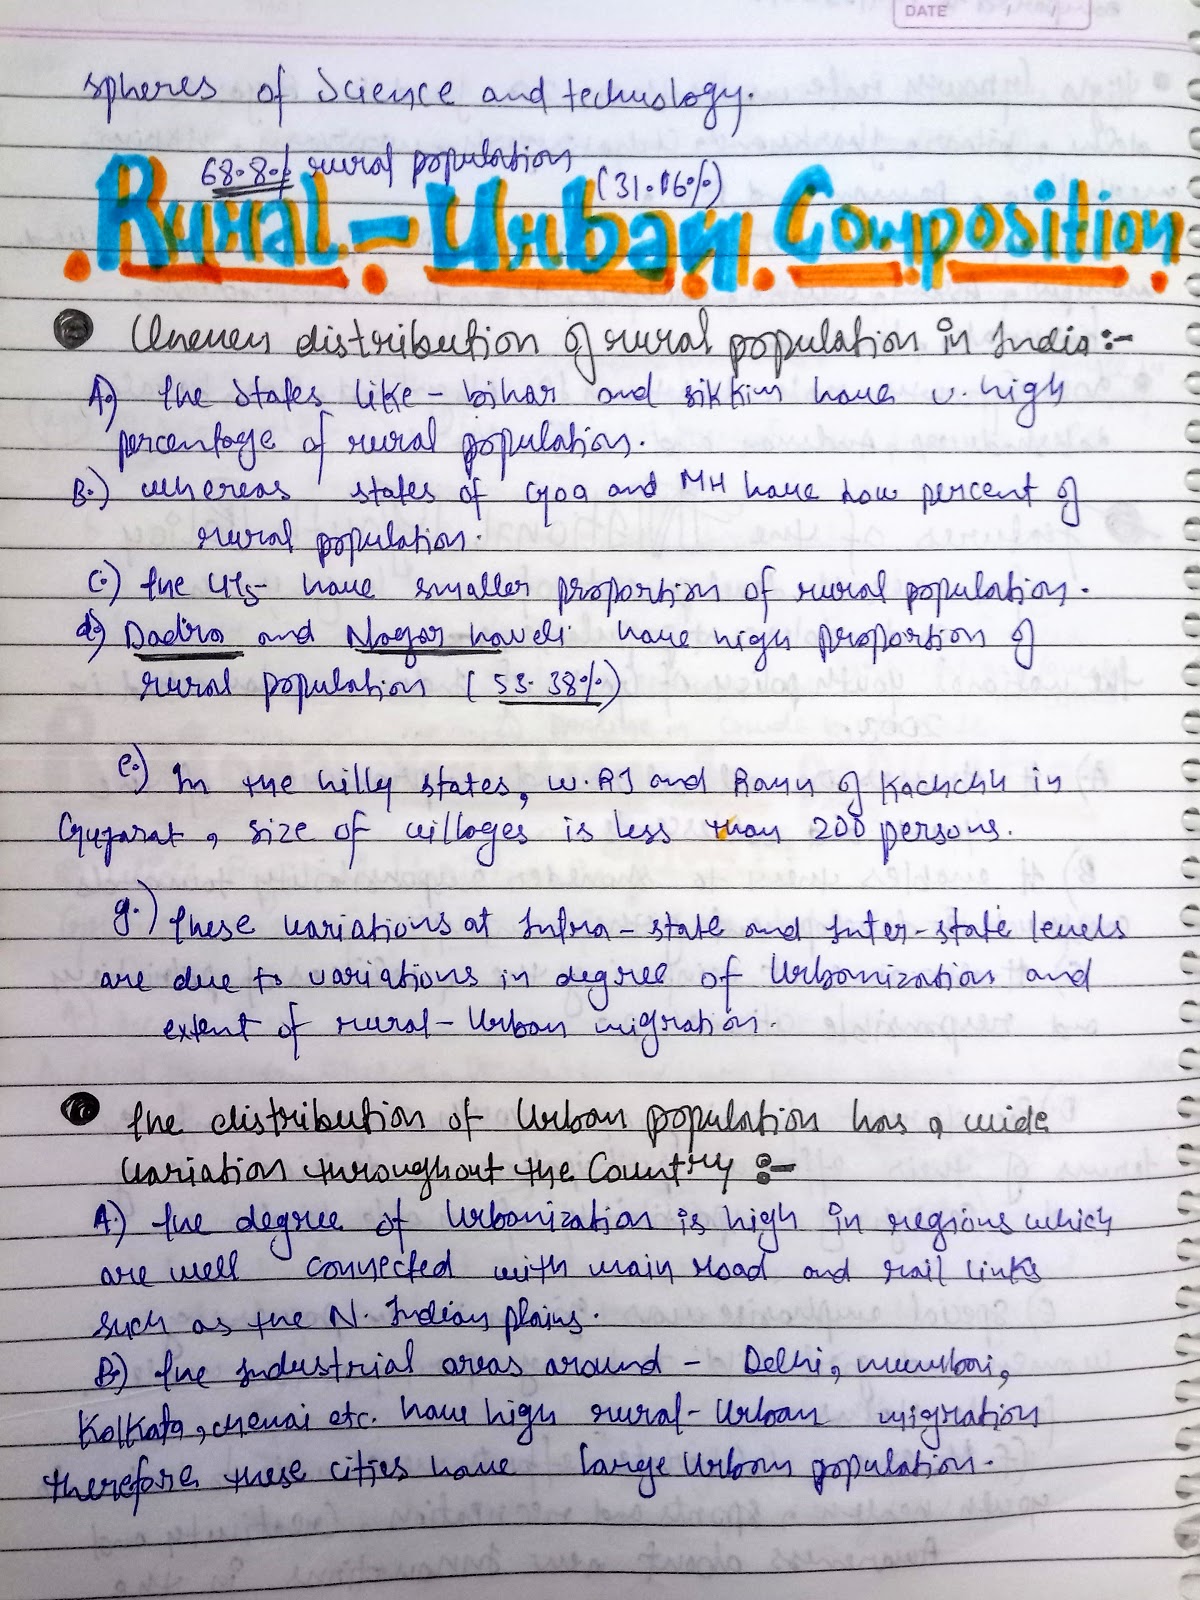 DATE
spheres of Science and technology.
68.8% rural population (31.16%)
Rural - Urban Composition
Uneven distribution of rural population in India :-
A.) the States like - bihar and sikkim have v. high
percentage of rural population.
B.) whereas states of Goa and MH have low percent of
rural population.
C.) the UTs- have smaller proportion of rural population.
d.) Dadra and Nagar haveli have high proportion of
rural population (53.38%)
e.) In the hilly states, W.RJ and Rann of Kachchh in
Gujarat, size of villages is less than 200 persons.
g.) these variations at Intra-state and Inter-state levels
are due to variations in degree of Urbanization and
extent of rural-Urban migration.
the distribution of Urban population has a wide
variation throughout the Country :-
A.) the degree of Urbanization is high in regions which
are well connected with main road and rail links
such as the N. Indian plains.
B.) the Industrial areas around - Delhi, mumbai,
Kolkata, chenai etc. have high rural-Urban migration
therefore these cities have large Urban population.